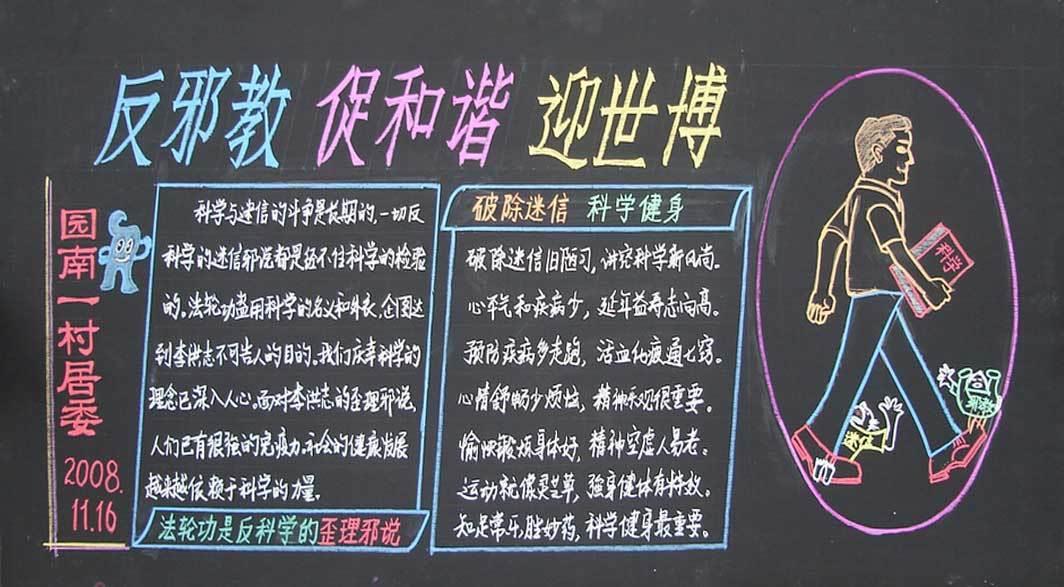 反邪教 促和谐 迎世博
园南一村居委
2008.
11.16
科学与迷信的斗争是长期的,一切反
科学的迷信邪说都是经不住科学的检验
的。法轮功盗用科学的名义和外衣,企图达
到李洪志不可告人的目的。我们庆幸科学的
理念已深入人心。面对李洪志的歪理邪说,
人们已有很强的免疫力。社会的健康发展
越来越依赖于科学的力量。
法轮功是反科学的歪理邪说
破除迷信 科学健身
破除迷信旧陋习,讲究科学新风尚。
心平气和疾病少,延年益寿志向高。
预防疾病多走跑,活血化瘀通七窍。
心情舒畅少烦恼,精神乐观很重要。
愉快锻炼身体好,精神空虚人易老。
运动就像灵芝草,强身健体有特效。
知足常乐胜妙药,科学健身最重要。
科学
迷信
邪教